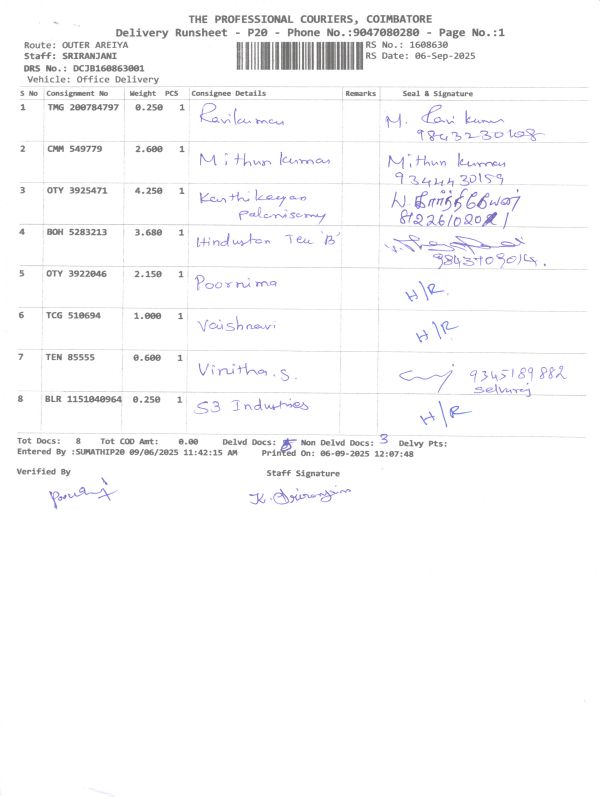 THE PROFESSIONAL COURIERS, COIMBATORE
Delivery Runsheet - P20 - Phone No.:9047080280 - Page No.:1
Route: OUTER AREIYA RS No.: 1608630
Staff: SRIRANJANI RS Date: 06-Sep-2025
DRS No.: DCJB160863001
Vehicle: Office Delivery
S No Consignment No Weight PCS Consignee Details Remarks Seal & Signature
1 TMG 200784797 0.250 1 Ravikumar M. Ravi kumar
9843230108
2 CMM 549779 2.600 1 Mithun kumar Mithun kumar
9344430159
3 OTY 3925471 4.250 1 Karthikeyan கார்த்திகேயன்
Palanisamy
4 BOH 5283213 3.680 1 Hindustan Tex 'B'
5 OTY 3922046 2.150 1 Poornima H/R
6 TCG 510694 1.000 1 Vaishnavi H/R
7 TEN 85555 0.600 1 Vinitha.S. 9345189882
Selvaraj
8 BLR 1151040964 0.250 1 S3 Industries H/R
Tot Docs: 8 Tot COD Amt: 0.00 Delvd Docs: 5 Non Delvd Docs: 3 Delvy Pts:
Entered By :SUMATHIP20 09/06/2025 11:42:15 AM Printed On: 06-09-2025 12:07:48
Verified By Staff Signature
K. Sriranjani